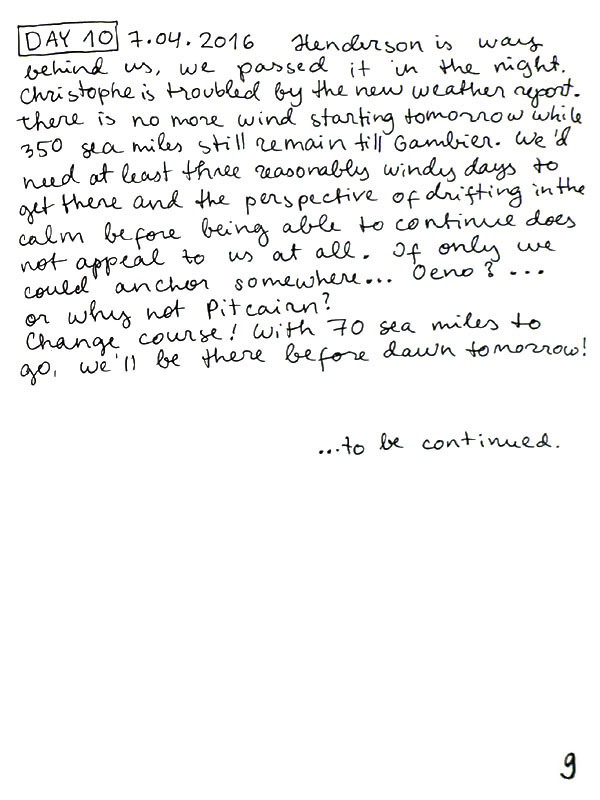 DAY 10 7.04.2016 Henderson is way
behind us, we passed it in the night.
Christophe is troubled by the new weather report.
there is no more wind starting tomorrow while
350 sea miles still remain till Gambier. We'd
need at least three reasonably windy days to
get there and the perspective of drifting in the
calm before being able to continue does
not appeal to us at all. If only we
could anchor somewhere... Oeno? ...
or why not Pitcairn?
Change course! With 70 sea miles to
go, we'll be there before dawn tomorrow!
...to be continued.
9